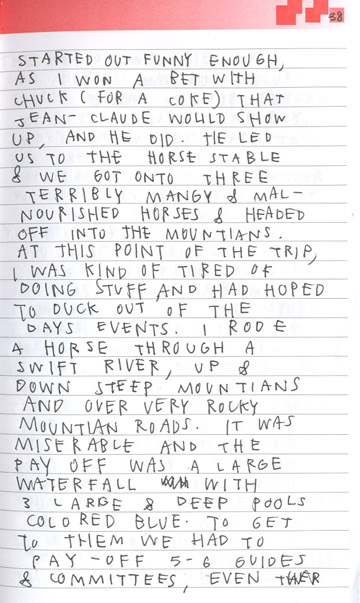 38
STARTED OUT FUNNY ENOUGH,
AS I WON A BET WITH
CHUCK (FOR A COKE) THAT
JEAN-CLAUDE WOULD SHOW
UP, AND HE DID. HE LED
US TO THE HORSE STABLE
& WE GOT ONTO THREE
TERRIBLY MANGY & MAL-
NOURISHED HORSES & HEADED
OFF INTO THE MOUNTIANS.
AT THIS POINT OF THE TRIP,
I WAS KIND OF TIRED OF
DOING STUFF AND HAD HOPED
TO DUCK OUT OF THE
DAYS EVENTS. I RODE
A HORSE THROUGH A
SWIFT RIVER, UP &
DOWN STEEP MOUNTIANS
AND OVER VERY ROCKY
MOUNTIAN ROADS. IT WAS
MISERABLE AND THE
PAY OFF WAS A LARGE
WATERFALL WITH
3 LARGE & DEEP POOLS
COLORED BLUE. TO GET
TO THEM WE HAD TO
PAY-OFF 5-6 GUIDES
& COMMITTEES, EVEN